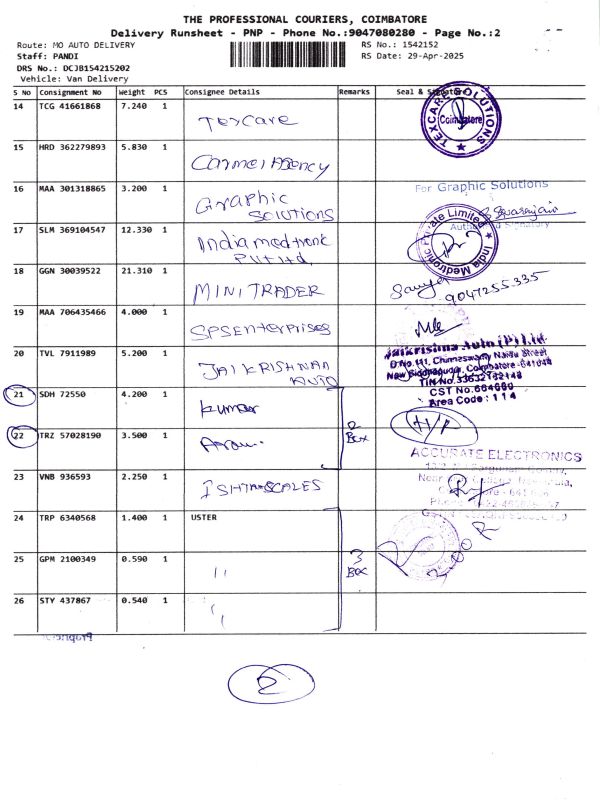 THE PROFESSIONAL COURIERS, COIMBATORE
Delivery Runsheet - PNP - Phone No.:9047080280 - Page No.:2
Route: MO AUTO DELIVERY
RS No.: 1542152
Staff: PANDI
RS Date: 29-Apr-2025
DRS No.: DCJB154215202
Vehicle: Van Delivery
S No Consignment No Weight PCS Consignee Details Remarks Seal & Signature
14 TCG 41661868 7.240 1 Texcare
TEXCARE SOLUTIONS Coimbatore
15 HRD 362279893 5.830 1 Carmel Agency
16 MAA 301318865 3.200 1 Graphic Solutions
For Graphic Solutions
Authorised Signatory
17 SLM 369104547 12.330 1 India medtronic Pvt Ltd,
India Medtronic Private Limited
18 GGN 30039522 21.310 1 MINI TRADER
9047255335
19 MAA 706435466 4.000 1 SPS Enterprises
20 TVL 7911989 5.200 1 JAI KRISHNAA AUTO
Jaikrishna Auto (P) Ltd
D No.111, Chinnaswamy Naidu Street
New Siddhapudur, Coimbatore -641044
TIN No.33632162148
CST No.664660
Area Code : 114
21 SDH 72550 4.200 1 Kumar
22 TRZ 57028190 3.500 1 Arou
2 Box
H/P
ACCURATE ELECTRONICS
23 VNB 936593 2.250 1 ISHTA SCALES
24 TRP 6340568 1.400 1 USTER
25 GPM 2100349 0.590 1 "
3 Box
26 STY 437867 0.540 1 "
2